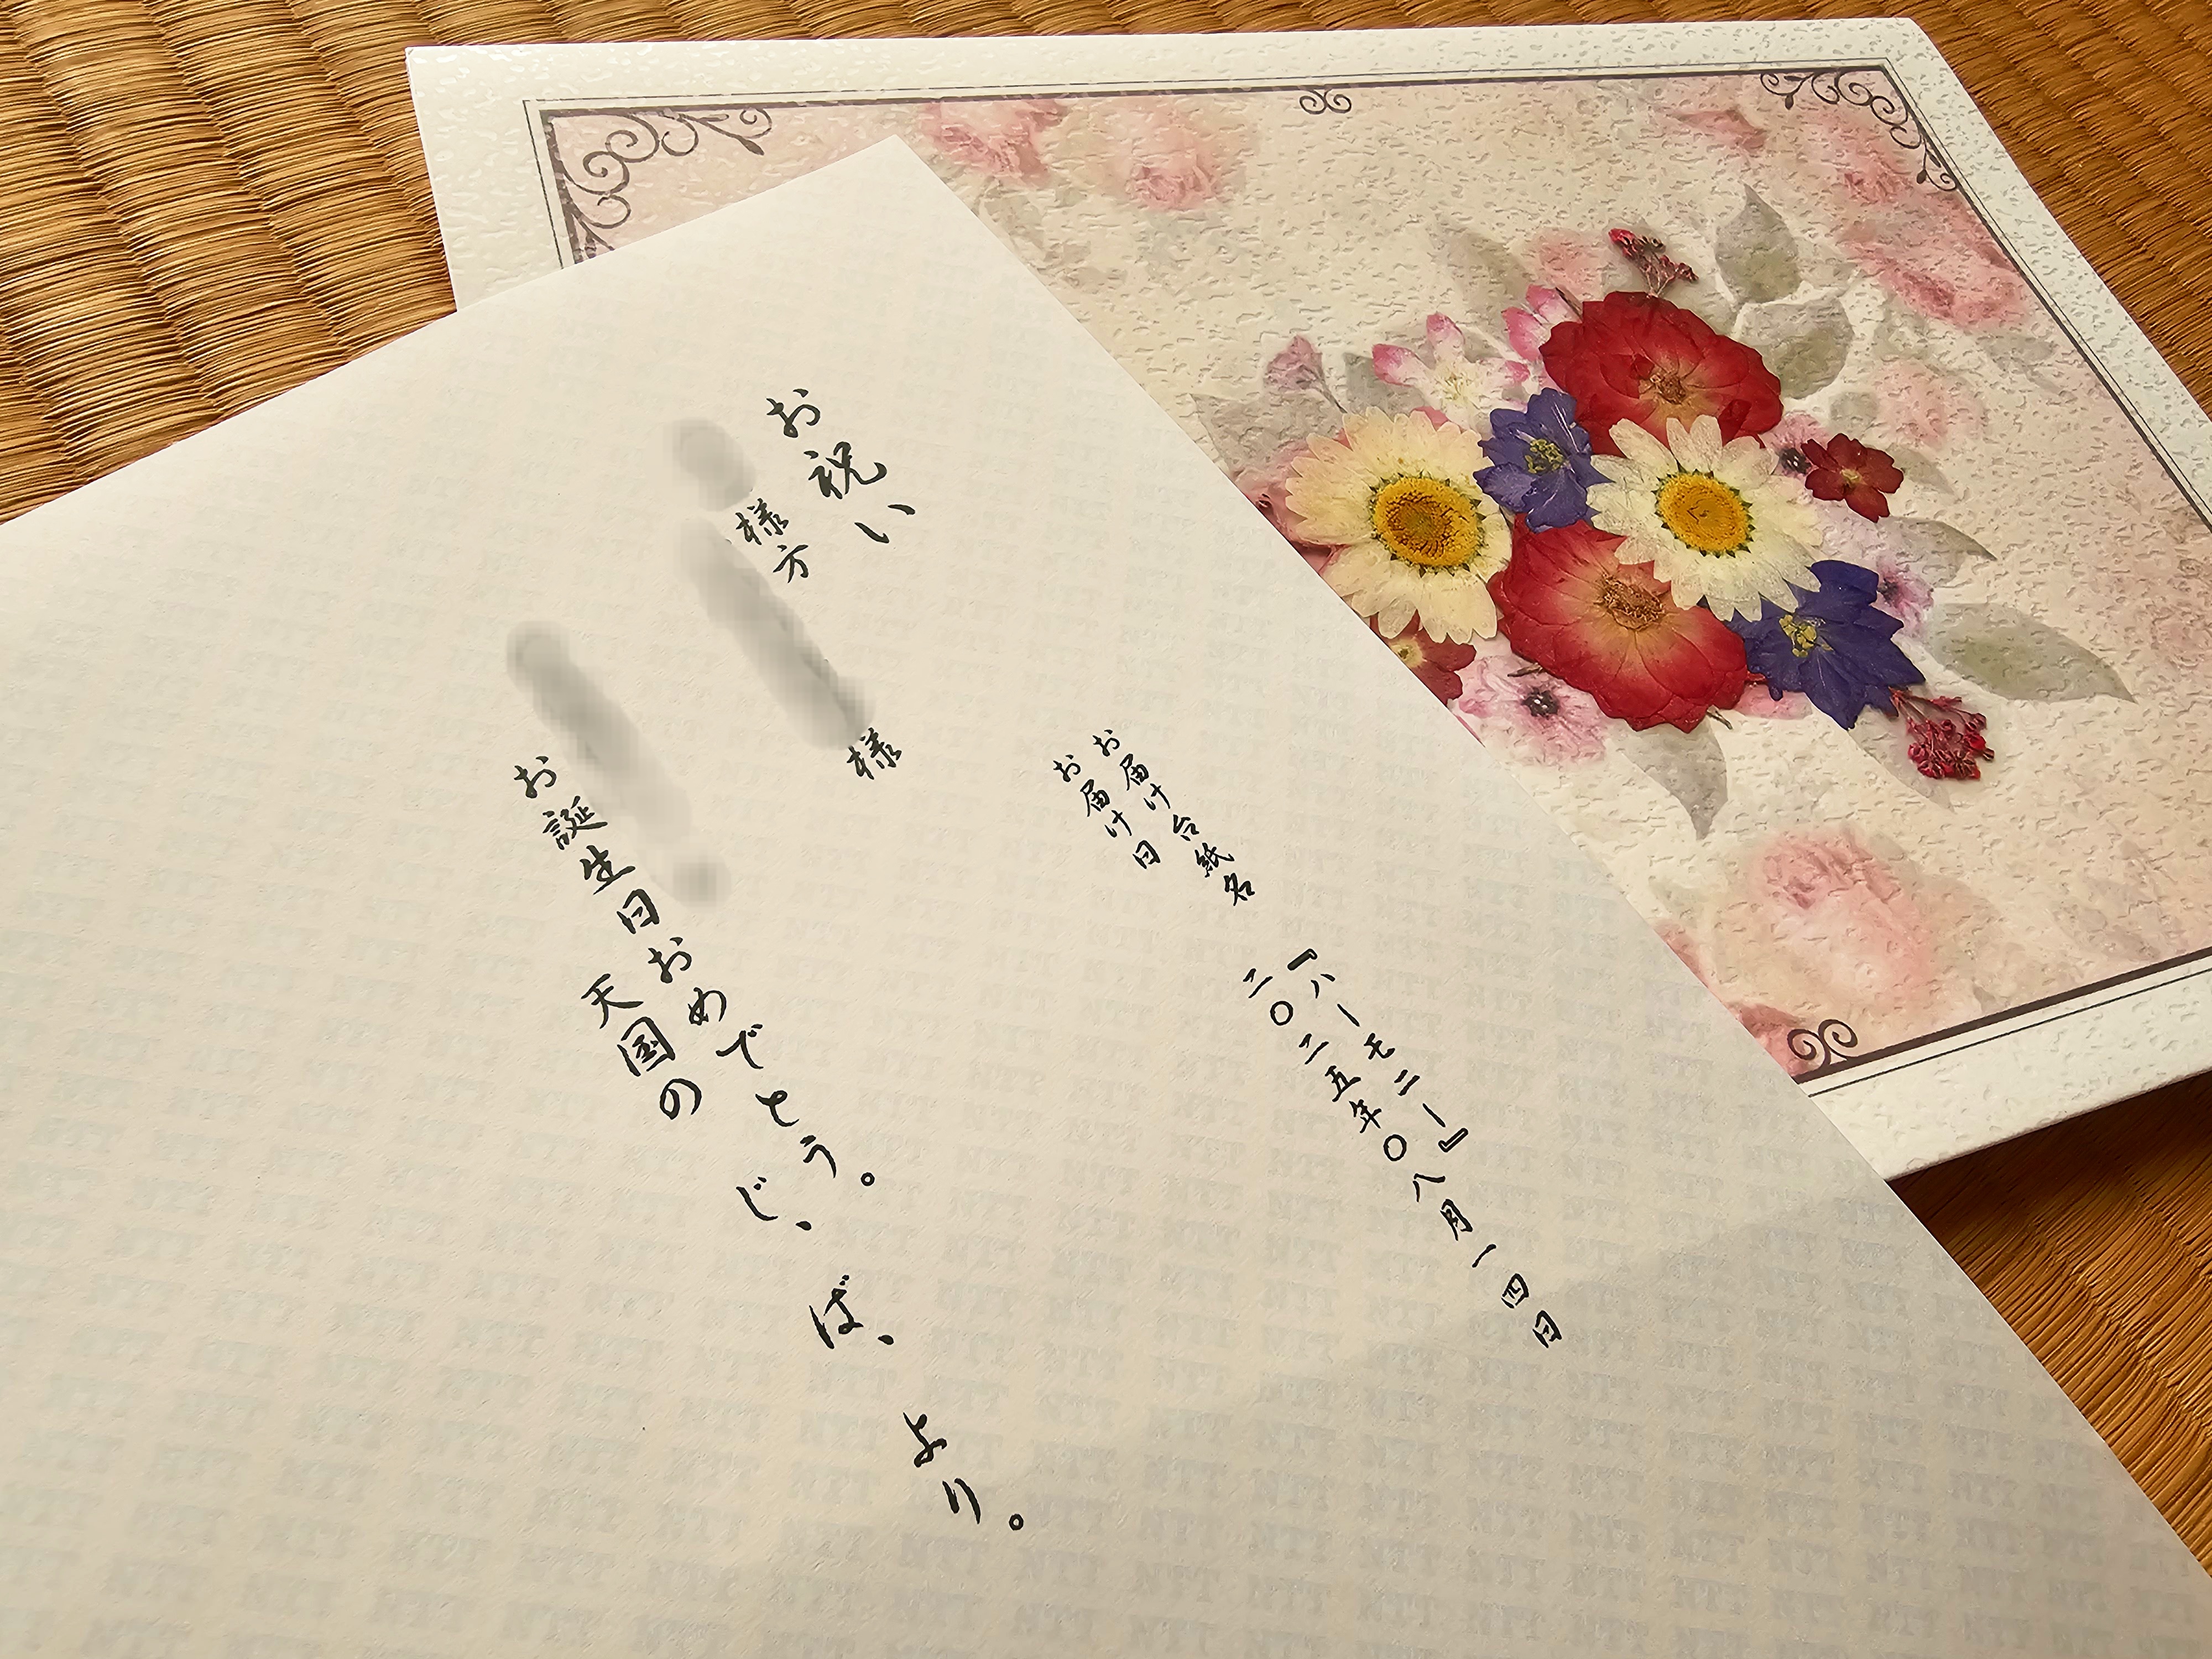 お届け台紙名 『ハーモニー』
お届け日 二〇二五年〇八月一四日
お祝い
様方
様
お誕生日おめでとう。
天国の じ、ば、より。